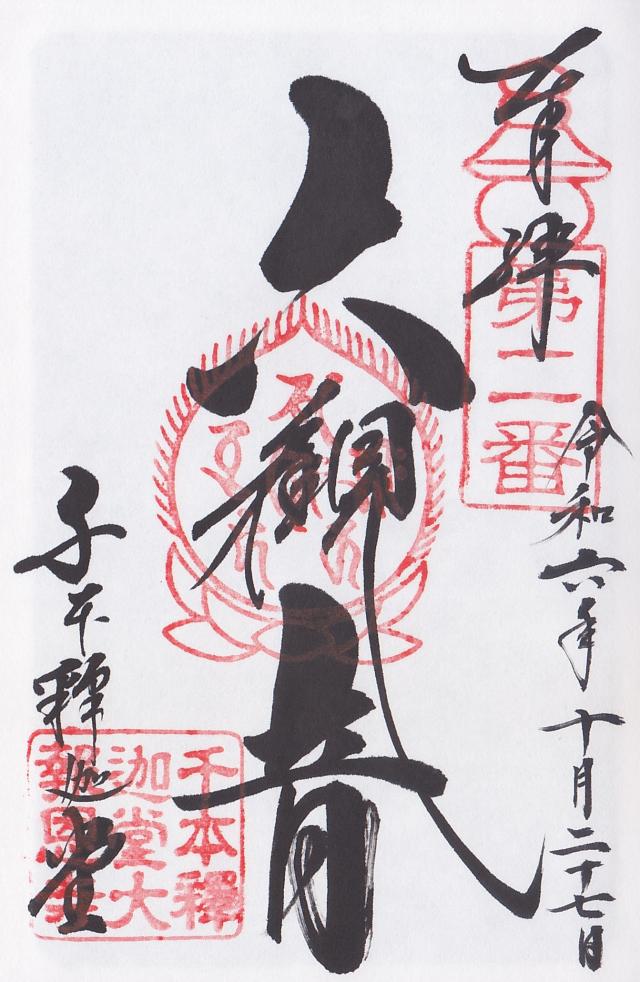 奉拝
第二番
令和六年十月二十七日
六観音
千本釋迦堂
千本釋
迦堂大
報恩寺